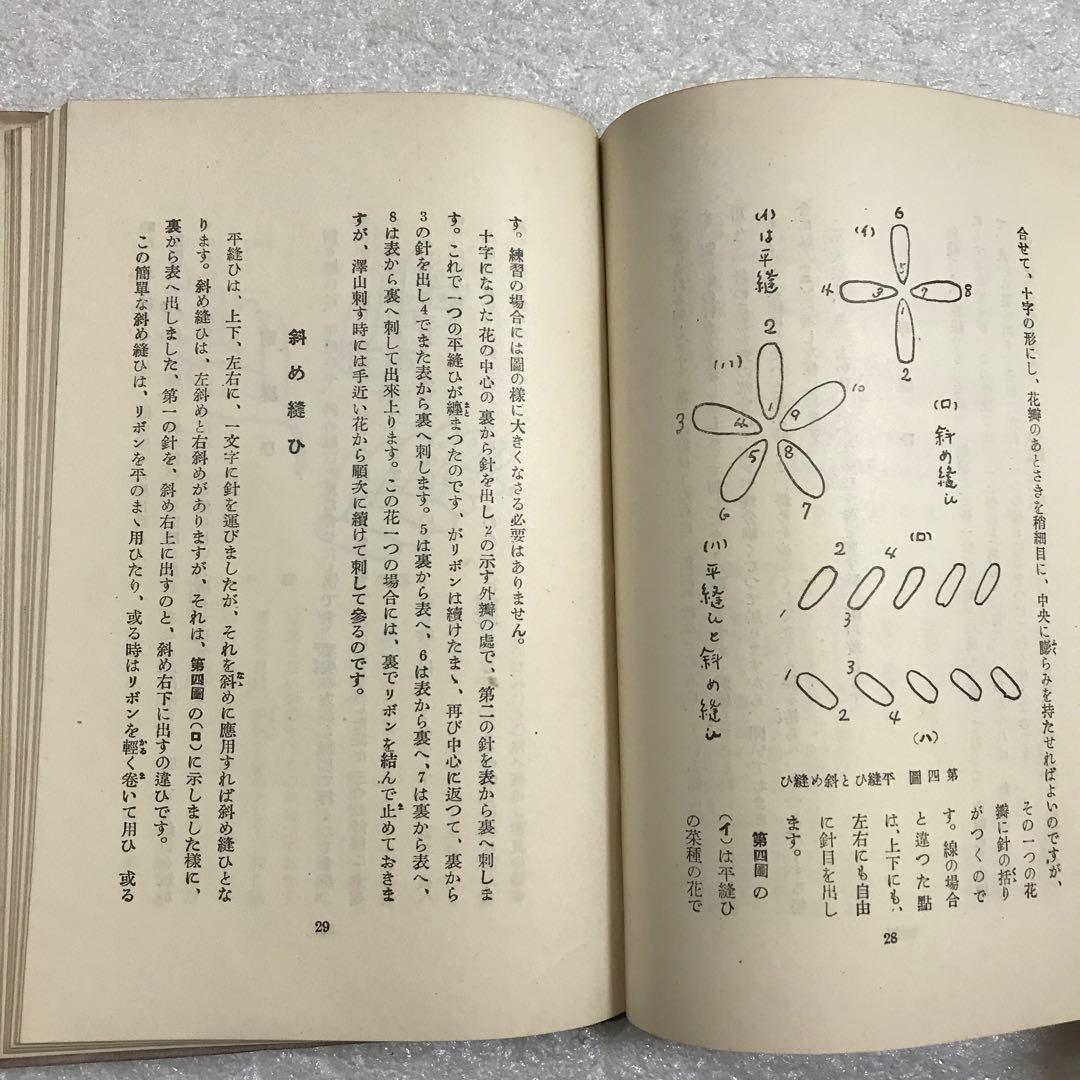 合せて、十字の形にし、花瓣のあとさきを稍細目に、中央に膨らみを持たせればよいのですが、
その一つの花
瓣に針の括り
がつくので
す。線の場合
と違つた點
は、上下にも、
左右にも自由
に針目を出し
ます。
第四圖の
(イ)は平縫ひ
の菜種の花で
(イ)
6
5
4
3
7
8
1
2
(ロ)斜め縫ひ
(イ)は平縫
(ハ)
2
1
10
9
3
4
5
8
6
7
(ロ)
2
4
1
3
1
3
2
4
(ハ)
(ハ)平縫ひと斜め縫ひ
第四圖 平縫ひと斜め縫ひ
28
す。練習の場合には圖の樣に大きくなさる必要はありません。
十字になつた花の中心の裏から針を出し2の示す外瓣の處で、第二の針を表から裏へ刺しま
す。これで一つの平縫ひが纏まつたのです、がリボンは續けたまゝ、再び中心に返つて、裏から
3の針を出し4でまた表から裏へ刺します。5は裏から表へ、6は表から裏へ、7は裏から表へ、
8は表から裏へ刺して出來上ります。この花一つの場合には、裏でリボンを結んで止めておきま
すが、澤山刺す時には手近い花から順次に續けて刺して參るのです。
斜め縫ひ
平縫ひは、上下、左右に、一文字に針を運びましたが、それを斜めに應用すれば斜め縫ひとな
ります。斜め縫ひは、左斜めと右斜めがありますが、それは、第四圖の(ロ)に示しました樣に、
裏から表へ出しました、第一の針を、斜め右上に出すのと、斜め右下に出すの違ひです。
この簡單な斜め縫ひは、リボンを平のまゝ用ひたり、或る時はリボンを輕く卷いて用ひ 或る
29